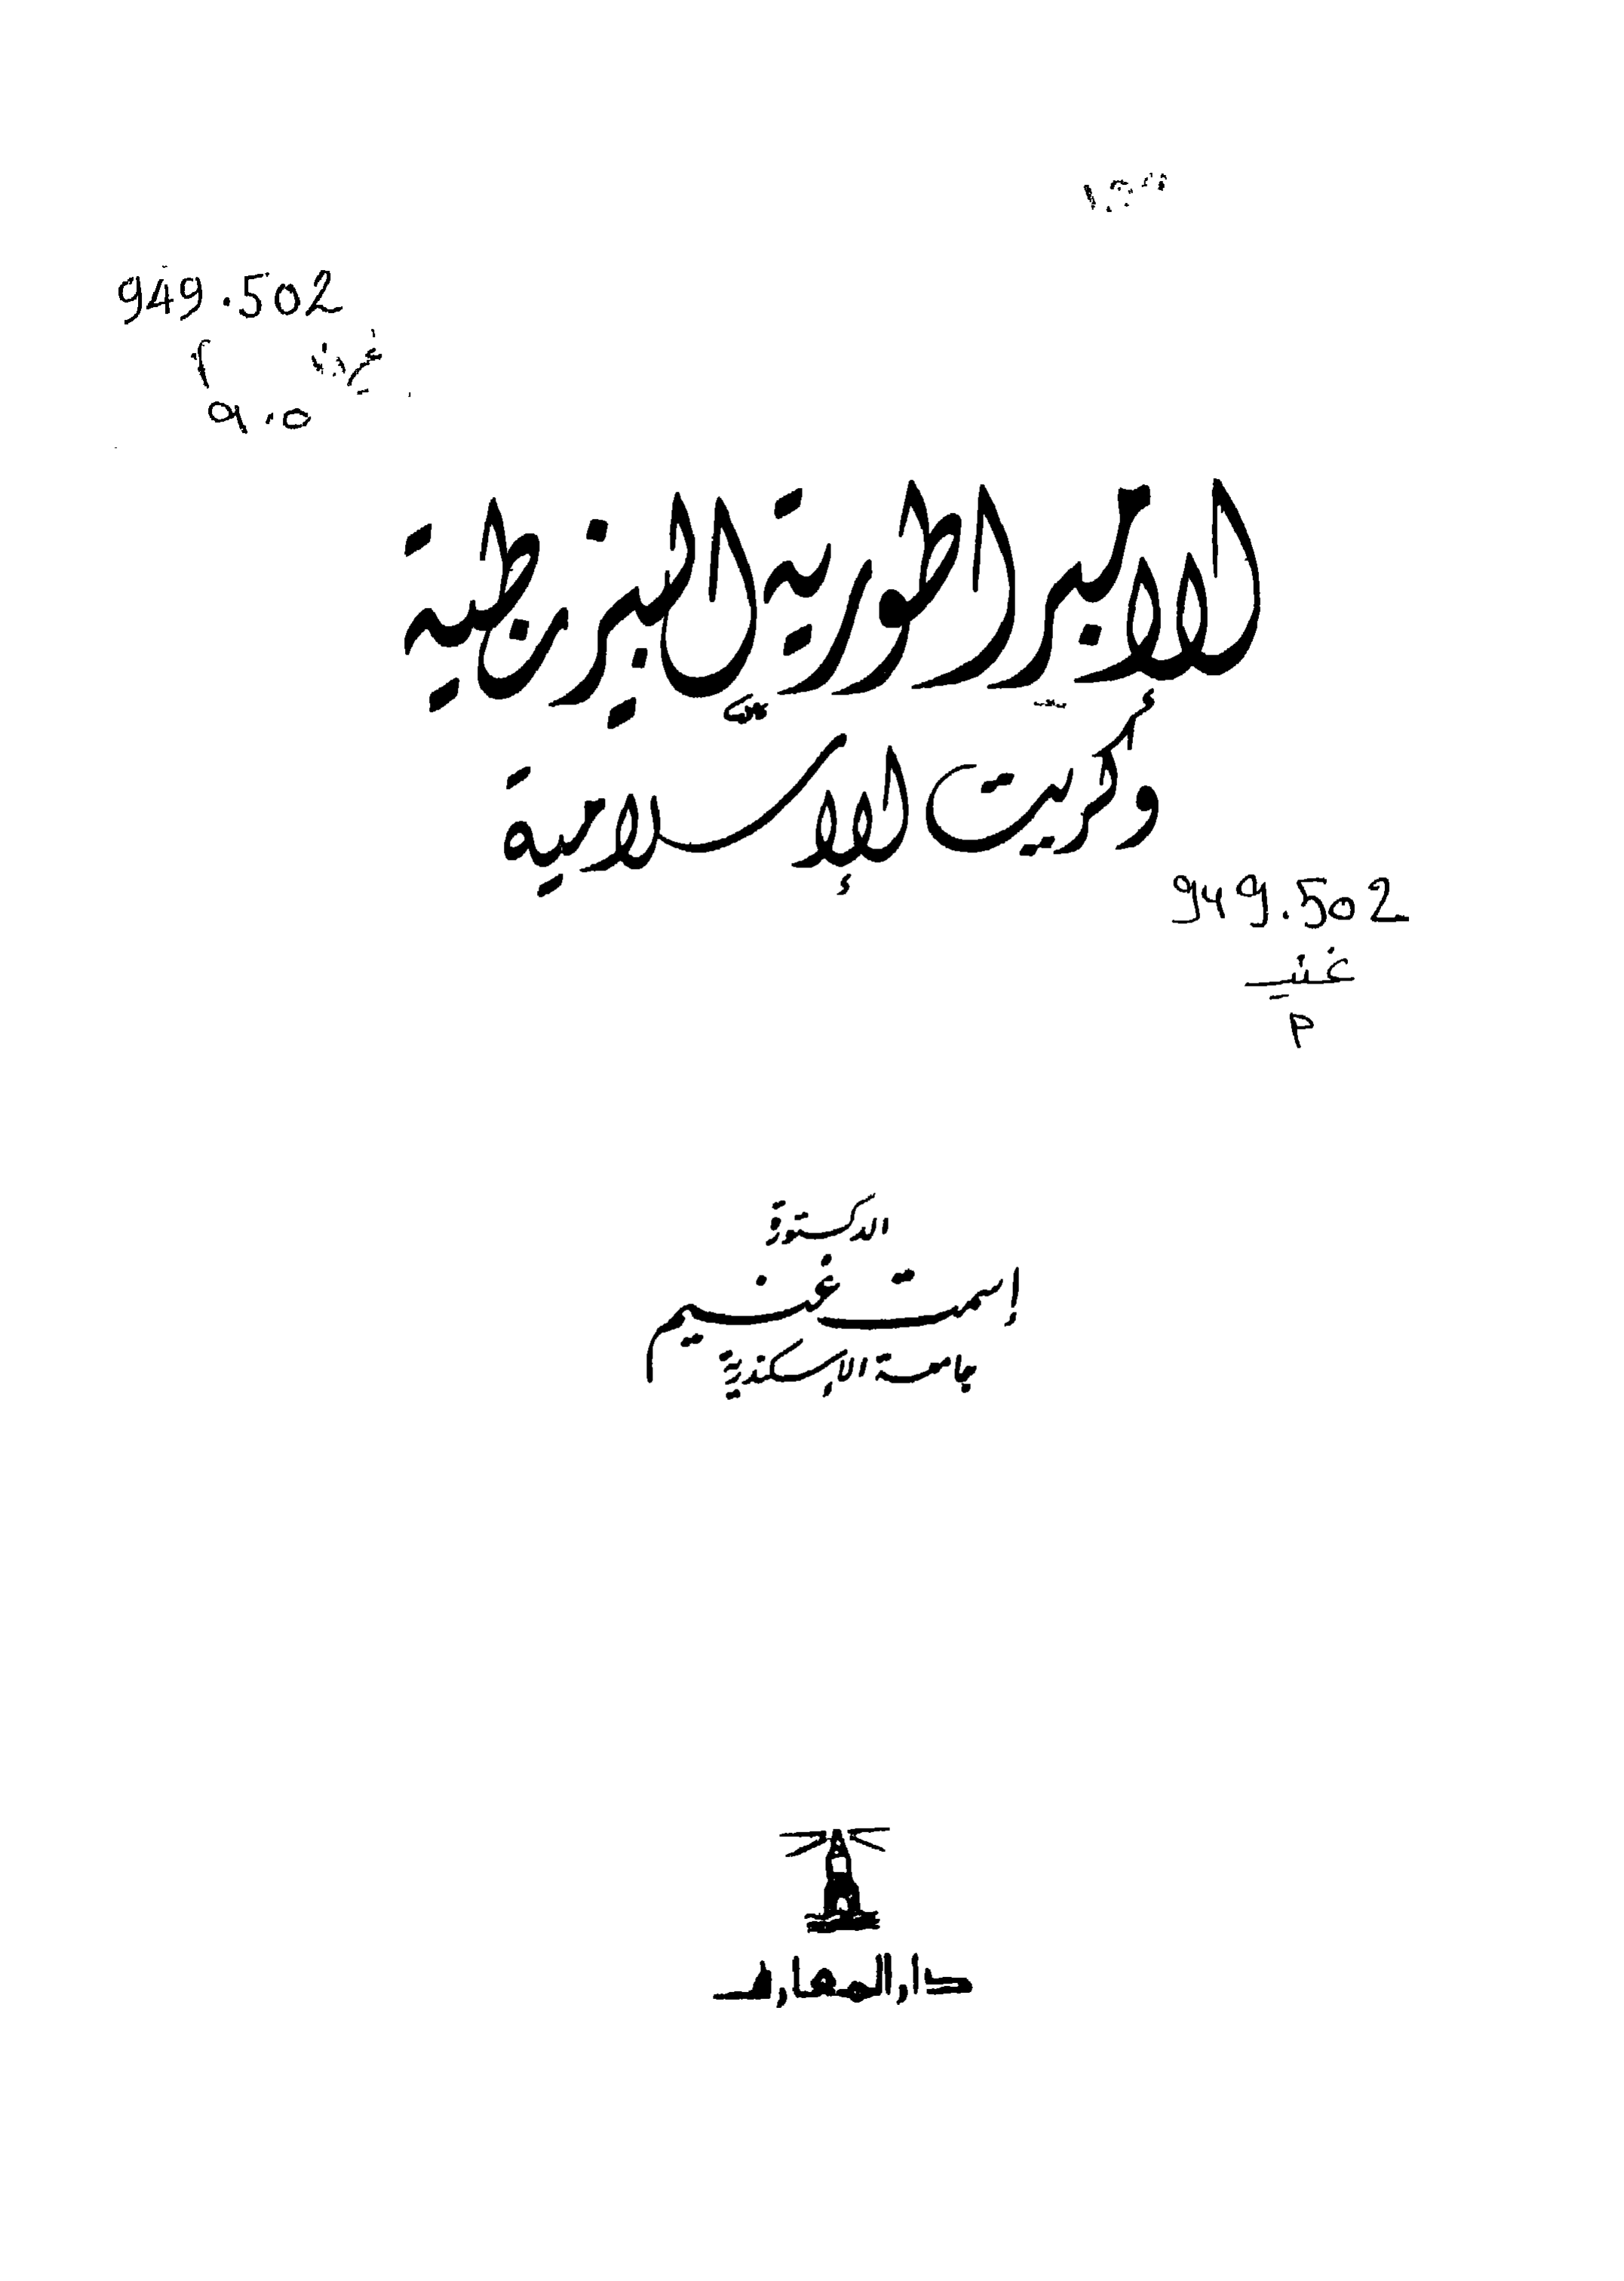 949.502
٩٠٥
الامبراطورية البيزنطية
وكريت الإسلامية
949.502
غنيـ
م
الدكتورة
إسمت غنيم
جامعة الإسكندرية
دار المعارف